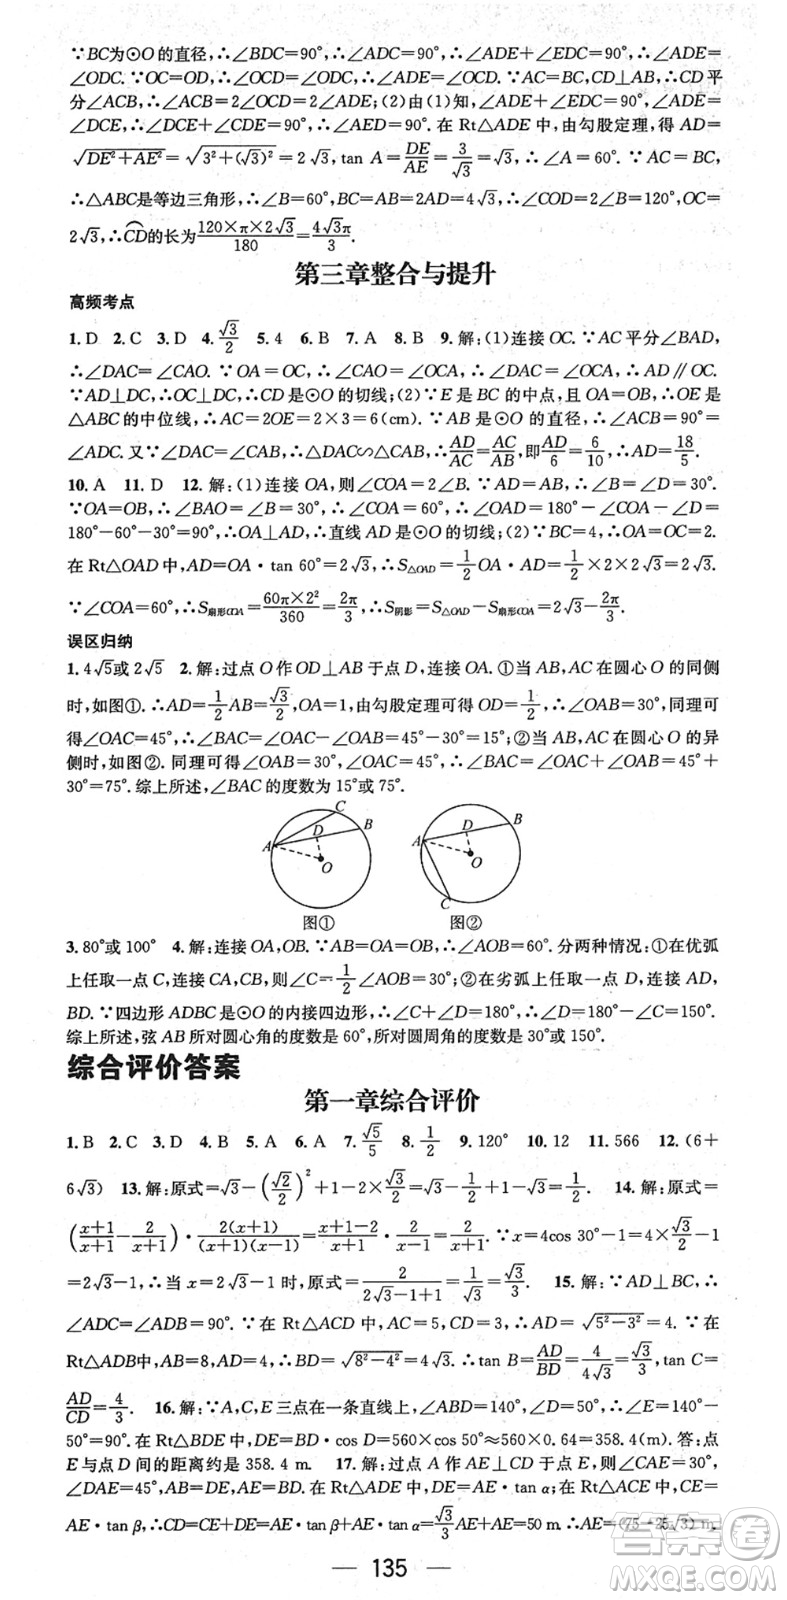 ∵BC为⊙O的直径,∴∠BDC=90°,∴∠ADC=90°,∴∠ADE+∠EDC=90°,∴∠ADE=
∠ODC.∵OC=OD,∴∠OCD=∠ODC,∴∠ADE=∠OCD.∵AC=BC,CD⊥AB,∴CD平
分∠ACB,∴∠ACB=2∠OCD=2∠ADE;(2)由(1)知,∠ADE+∠EDC=90°,∠ADE=
∠DCE,∴∠DCE+∠CDE=90°,∴∠AED=90°.在 Rt△ADE 中,由勾股定理,得 AD=
√(DE²+AE²)=√(3²+(√3)²)=2√3,tan A=DE/AE=3/√3=√3,∴∠A=60°.∵AC=BC,
∴△ABC是等边三角形,∴∠B=60°,BC=AB=2AD=4√3,∴∠COD=2∠B=120°,OC=
2√3,∴CD的长为120×π×2√3/180=4√3π/3.
第三章整合与提升
高频考点
1.D 2.C 3.D 4.√3/2 5.4 6.B 7.A 8.B 9.解:(1)连接 OC.∵AC平分∠BAD,
∴∠DAC=∠CAO.∵OA=OC,∴∠CAO=∠OCA,∴∠DAC=∠OCA,∴AD∥OC.
∵AD⊥DC,∴OC⊥DC,∴CD是⊙O的切线;(2)∵E是BC的中点,且OA=OB,∴OE是
△ABC的中位线,∴AC=2OE=2×3=6(cm).∵AB是⊙O的直径,∴∠ACB=90°=
∠ADC.又∵∠DAC=∠CAB,∴△DAC∽△CAB,∴AD/AC=AC/AB,即AD/6=6/10,∴AD=18/5.
10.A 11.D 12.解:(1)连接OA,则∠COA=2∠B.∵AD=AB,∴∠B=∠D=30°.
∵OA=OB,∴∠BAO=∠B=30°,∴∠COA=60°,∴∠OAD=180°-∠COA-∠D=
180°-60°-30°=90°,∴OA⊥AD,∴直线AD是⊙O的切线;(2)∵BC=4,∴OA=OC=2.
在 Rt△OAD 中,AD=OA·tan 60°=2√3,∴S△OAD=1/2OA·AD=1/2×2×2√3=2√3.
∵∠COA=60°,∴S扇形COA=60π×2²/360=2π/3,∴S阴影=S△OAD-S扇形COA=2√3-2π/3.
误区归纳
1.4√5或2√5 2.解:过点O作OD⊥AB于点D,连接OA.①当AB,AC在圆心O的同侧
时,如图①.∴AD=1/2AB=√3/2,OA=1,由勾股定理可得OD=1/2,∴∠OAB=30°,同理可
得∠OAC=45°,∴∠BAC=∠OAC-∠OAB=45°-30°=15°;②当AB,AC在圆心O的异
侧时,如图②.同理可得∠OAB=30°,∠OAC=45°,∴∠BAC=∠OAC+∠OAB=45°+
30°=75°.综上所述,∠BAC的度数为15°或75°.
C
D B
A
O
图①
B
D
A
O
C
图②
3.80°或100° 4.解:连接OA,OB.∵AB=OA=OB,∴∠AOB=60°.分两种情况:①在优弧
上任取一点C,连接CA,CB,则∠C=1/2∠AOB=30°;②在劣弧上任取一点D,连接AD,
BD.∵四边形ADBC是⊙O的内接四边形,∴∠C+∠D=180°,∴∠D=180°-∠C=150°.
综上所述,弦AB所对圆心角的度数是60°,所对圆周角的度数是30°或150°.
综合评价答案
第一章综合评价
1.B 2.C 3.D 4.A 5.A 6.A 7.√5/5 8.1/2 9.120° 10.12 11.566 12.(6+
6√3) 13.解:原式=√3-(√2/2)²+1-2×√3/2=√3-1/2+1-√3=1/2. 14.解:原式=
(x+1/x+1-2/x+1)·2(x+1)/(x+1)(x-1)=x+1-2/x+1·2/x-1=2/x+1.∵x=4cos 30°-1=4×√3/2-1
=2√3-1,∴当x=2√3-1时,原式=2/2√3-1+1=1/√3=√3/3. 15.解:∵AD⊥BC,∴
∠ADC=∠ADB=90°.∵在 Rt△ACD 中,AC=5,CD=3,∴AD=√(5²-3²)=4.∵在
Rt△ADB中,AB=8,AD=4.∴BD=√(8²-4²)=4√3.∴tan B=AD/BD=4/4√3=√3/3,tan C=
AD/CD=4/3. 16.解:∵A,C,E三点在一条直线上,∠ABD=140°,∠D=50°,∴∠E=140°-
50°=90°.在Rt△BDE中,DE=BD·cos D=560×cos 50°≈560×0.64=358.4(m).答:点
E与点D间的距离约是358.4 m. 17.解:过点A作AE⊥CD于点E,则∠CAE=30°,
∠DAE=45°,AE=BD.在 Rt△ADE 中,DE=AE·tan α;在 Rt△ACE 中,CE=
AE·tan β,∴CD=CE+DE=AE·tan α+AE·tan β=√3/3AE+AE=50 m.∴AE=(75-25√3) m.
135
答案圈
MXQE.COM